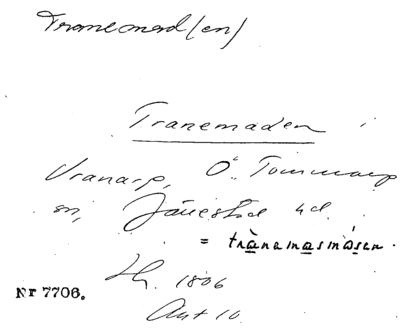 Tranemad(en)
Tranemaden i
Vranarp, Ö. Tommarp
sn, Järrestad hd.
= trànamasmásen.
Lh. 1806
Akt 10
Nr 7706.